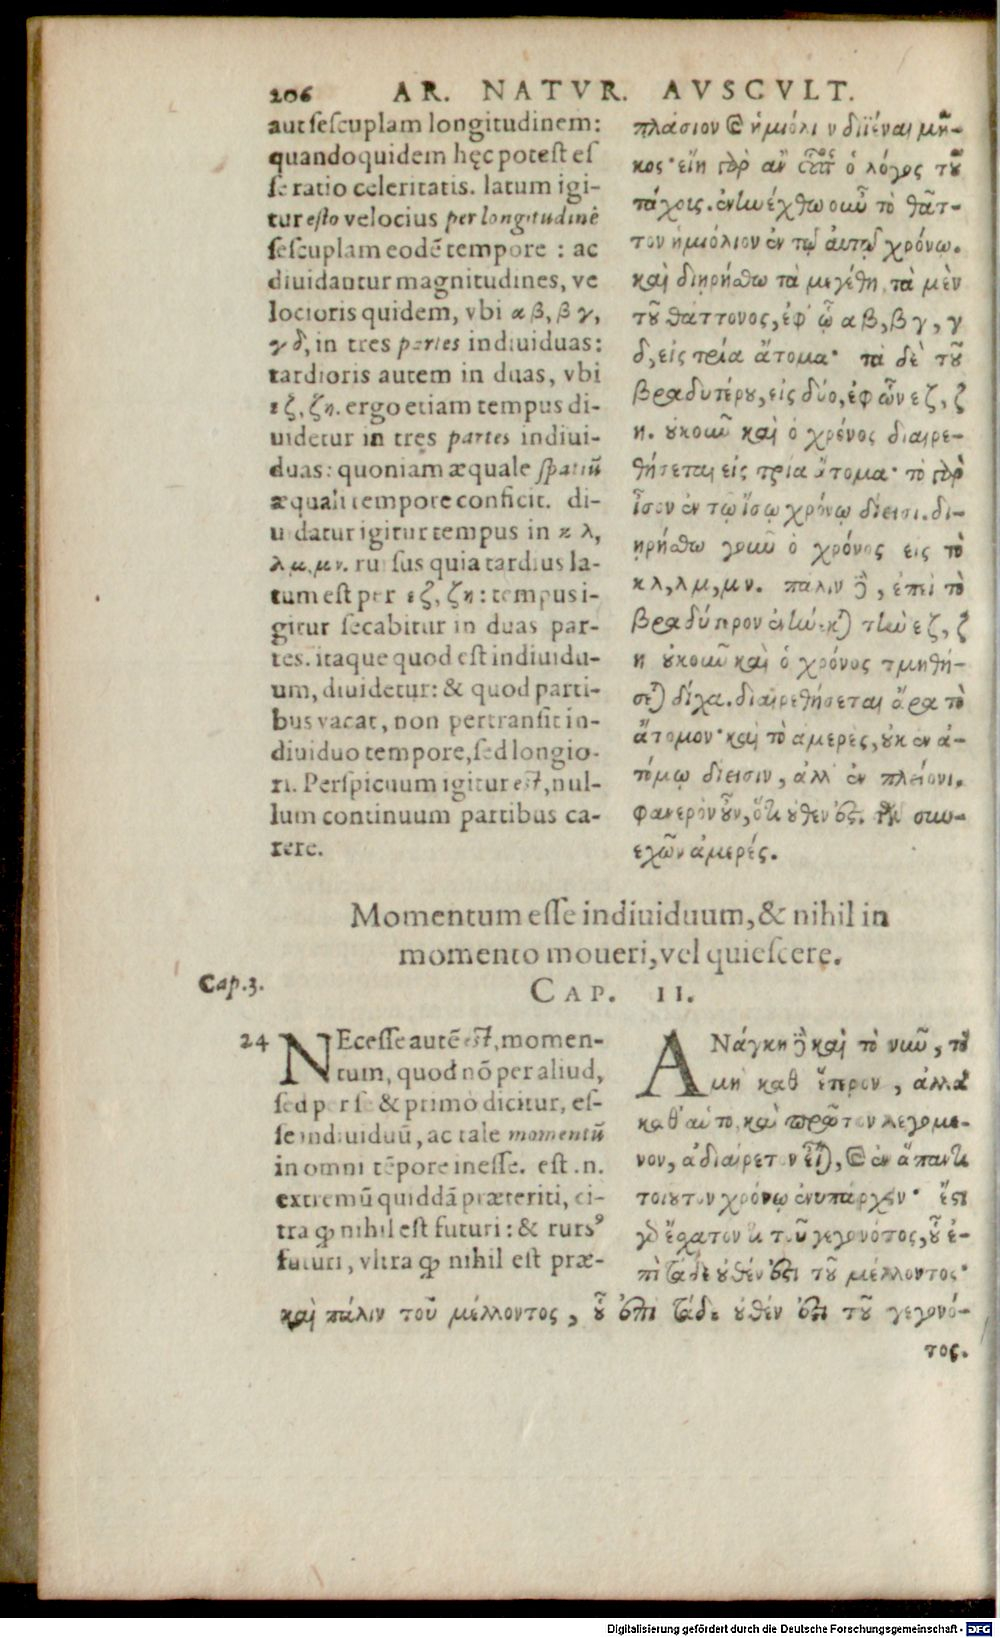 206 AR. NATVR. AVSCVLT.
aut sescuplam longitudinem:
quandoquidem hęc potest es
se ratio celeritatis. latum igi-
tur esto velocius per longitudinē
sescuplam eodē tempore : ac
diuidantur magnitudines, ve
locioris quidem, vbi α β, β γ,
γ δ, in tres partes indiuiduas:
tardioris autem in duas, vbi
ε ζ, ζ η. ergo etiam tempus di-
uidetur in tres partes indiui-
duas: quoniam æquale spatiū
æquali tempore conficit. di-
uidatur igitur tempus in κ λ,
λ μ, μ ν. rursus quia tardius la-
tum est per ε ζ, ζ η: tempus i-
gitur secabitur in duas par-
tes. itaque quod est indiuidu-
um, diuidetur: & quod parti-
bus vacat, non pertransit in-
diuiduo tempore, sed longio-
ri. Perspicuum igitur est, nul-
lum continuum partibus ca-
rere.
πλάσιον καὶ ἡμιόλιον διϊέναι μῆ-
κος· εἴη γὸρ ἂν οὗτος ὁ λόγος τοῦ
τάχοις. ἐνηνέχθω οὖν τὸ θᾶτ-
τον ἡμιόλιον ἐν τῷ αὐτῷ χρόνῳ.
καὶ διῃρήσθω τὰ μεγέθη, τὰ μὲν
τοῦ θάττονος, ἐφ' ᾧ α β, β γ, γ
δ, εἰς τρία ἄτομα· τὰ δὲ τοῦ
βραδυτέρου, εἰς δύο, ἐφ ὧν ε ζ, ζ
η. οὐκοῦν καὶ ὁ χρόνος διαιρε-
θήσεται εἰς τρία ἄτομα· τὸ γὸρ
ἴσον ἐν τῷ ἴσῳ χρόνῳ δίεισι. δι-
ῃρήσθω γοῦν ὁ χρόνος εἰς τὸ
κ λ, λ μ, μ ν. πάλιν δὲ, ἐπεὶ τὸ
βραδύτερον ἐνήνεκται τὴν ε ζ, ζ
η οὐκοῦν καὶ ὁ χρόνος τμηθή-
σεται δίχα. διαιρεθήσεται ἄρα τὸ
ἄτομον· καὶ τὸ ἀμερὲς, οὐκ ἐν ἀ-
τόμῳ δίεισιν, ἀλλ' ἐν πλείονι.
φανερὸν οὖν, ὅτι οὐθέν ἐστι τῶν συν-
εχῶν ἀμερές.
Momentum esse indiuiduum, & nihil in
momento moueri, vel quiescere.
CAP. II.
Cap. 3.
24
NEcesse autē est, momen-
tum, quod nō per aliud,
sed per se & primo dicitur, es-
se indiuiduū, ac tale momentū
in omni tēpore inesse. est .n.
extremū quiddā præteriti, ci-
tra qđ nihil est futuri: & rurs⁹
futuri, vltra qđ nihil est præ-
ΑΝάγκη δὲ καὶ τὸ νῦν, τὸ
μὴ καθ' ἕτερον, ἀλλὰ
καθ' αὑτὸ καὶ πρῶτον λεγόμε-
νον, ἀδιαίρετον εἶναι, καὶ ἐν ἅπαντι
τοιοῦτον χρόνῳ ἐνυπάρχειν· ἔστι
γὰρ ἔσχατόν τι τοῦ γεγονότος, οὗ ἐ-
πὶ τάδε οὐθέν ἐστι τοῦ μέλλοντος·
καὶ πάλιν τοῦ μέλλοντος, οὗ ἐπὶ τάδε οὐθέν ἐστι τοῦ γεγονό-
τος.
Digitalisierung gefördert durch die Deutsche Forschungsgemeinschaft - DFG